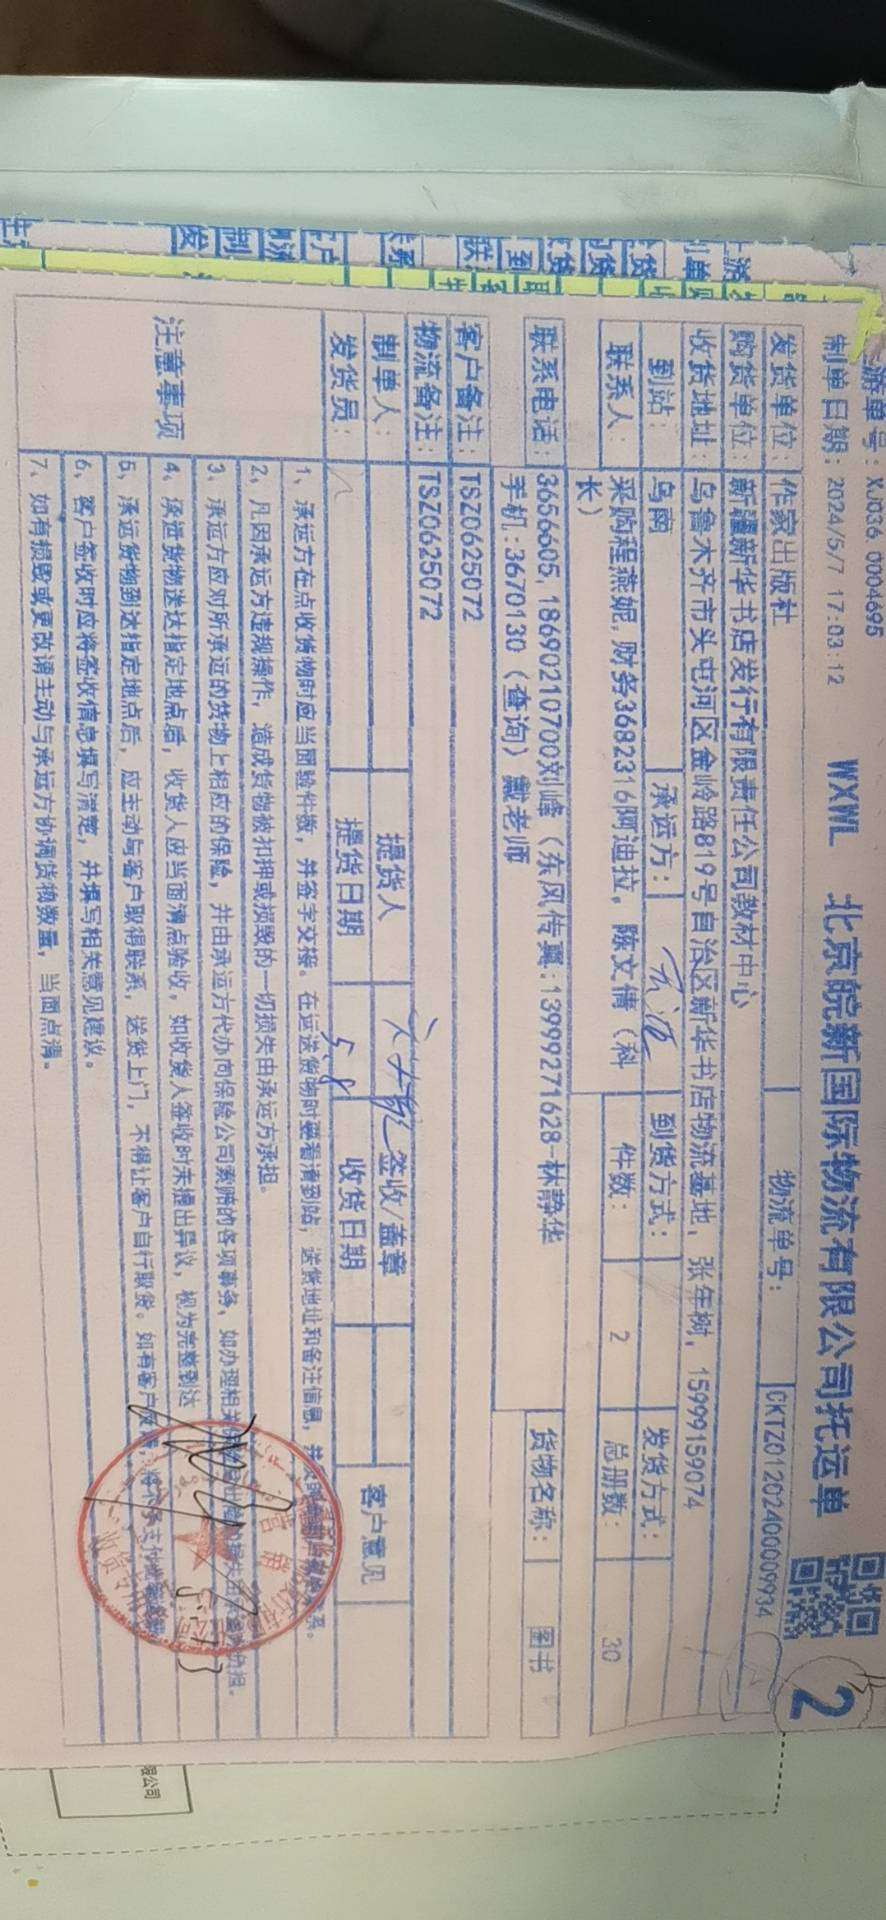 上游单号：XJ036 0004695
制单日期：2024/5/7 17:03:12
WXWL 北京皖新国际物流有限公司托运单
2
发货单位： 作家出版社 物流单号： CKTZ01202400009934
购货单位： 新疆新华书店发行有限责任公司教材中心
收货地址： 乌鲁木齐市头屯河区金岭路819号自治区新华书店物流基地，张年树，15999159074
到站： 乌南 承运方： 到货方式： 发货方式：
联系人： 采购程燕妮，财务3682316阿迪拉，陈文倩（科
长） 件数： 2 总册数： 30
联系电话： 3656605，18690210700刘峰（东风传真：13999271628-林静华
手机：3670130（查询）戴老师 货物名称： 图书
客户备注： TSZ0625072
物流备注： TSZ0625072
制单人： 提货人 签收/盖章 客户意见
发货员： 提货日期 5.8 收货日期
注意事项
1、承运方在点收货物时应当面验件数，并签字交接。在运送货物时要看清到站，送货地址和备注信息，
2、凡因承运方违规操作，造成货物被扣押或损毁的一切损失由承运方承担。
3、承运方应对所承运的货物上相应的保险，并由承运方代办向保险公司索赔的各项事务，如办理相关
4、承运货物送达指定地点后，收货人应当面清点验收，如收货人签收时未提出异议，视为完整到达
5、承运货物到达指定地点后，应主动与客户取得联系，送货上门，不得让客户自行取货。如有客户
6、客户签收时应将签收信息填写清楚，并填写相关意见建议。
7、如有损毁或更改请主动与承运方协调货物数量，当面点清。
5-13
限公司